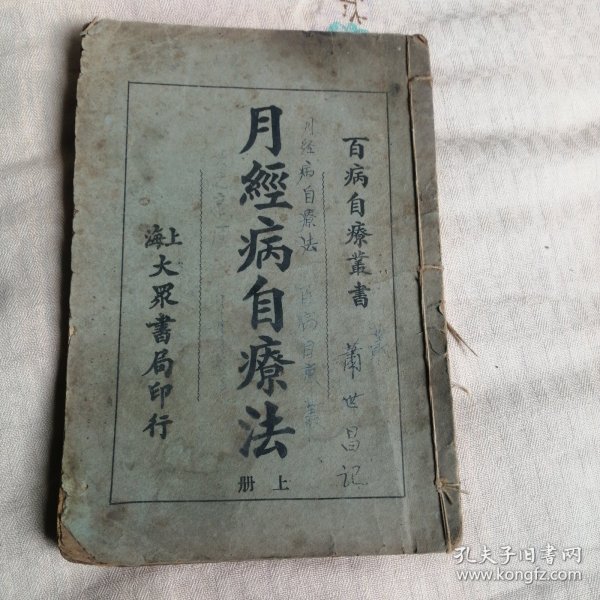 百病自療叢書
月經病自療法
上册
上海
大眾書局印行
月經病自療法
百病自療
蕭世昌記
孔夫子旧书网
www.kongfz.com